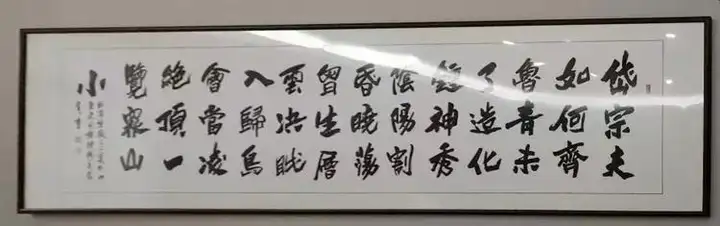 岱宗夫
如何齊
魯青未
了造化
鍾神秀
陰陽割
昏曉蕩
胷生層
雲決眦
入歸鳥
會當凌
絶頂一
覽衆山
小